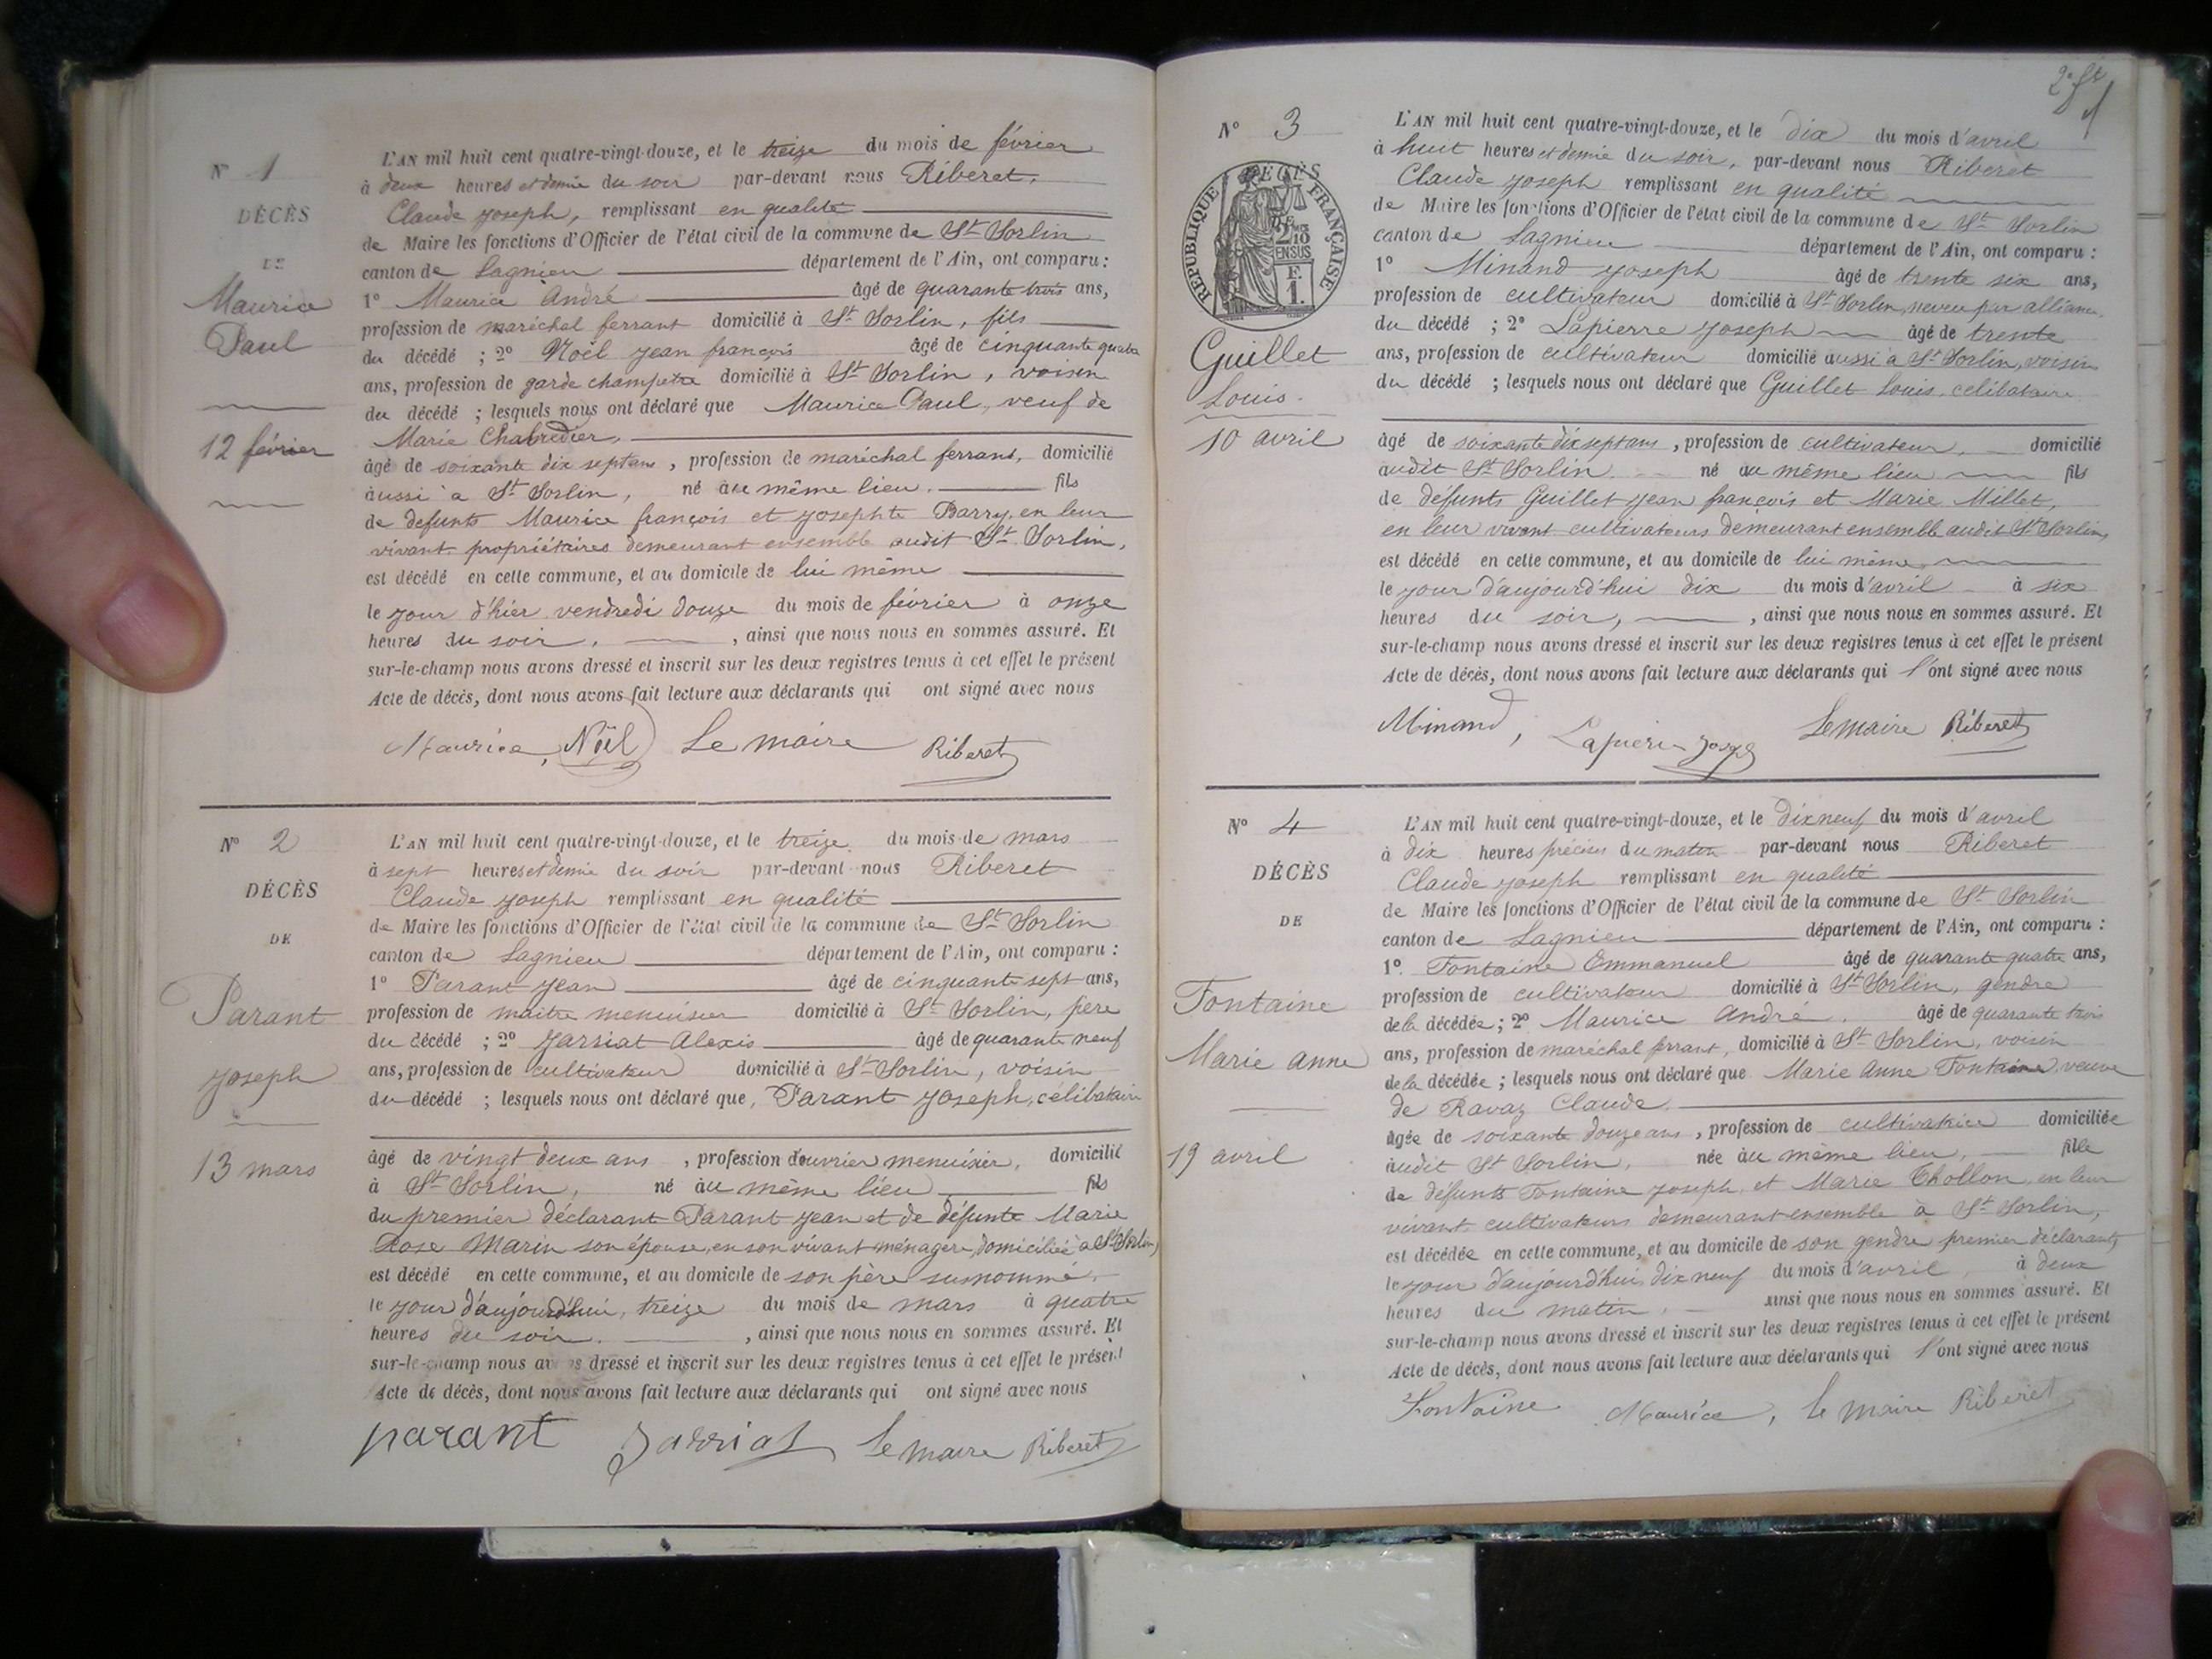 N° 1
DÉCÈS
DE
Maurice
Paul
12 février
L'AN mil huit cent quatre-vingt-douze, et le treize du mois de février
à deux heures et demie du soir par-devant nous Riberet,
Claude Joseph, remplissant en qualité
de Maire les fonctions d'Officier de l'état civil de la commune de St Sorlin
canton de Lagnieu département de l'Ain, ont comparu :
1° Maurice André âgé de quarante trois ans,
profession de maréchal ferrant domicilié à St Sorlin, fils
du décédé ; 2° Noël Jean françois âgé de cinquante quatre
ans, profession de garde champêtre domicilié à St Sorlin, voisin
du décédé ; lesquels nous ont déclaré que Maurice Paul, veuf de
Marie Chabredier,
âgé de soixante dix sept ans, profession de maréchal ferrant, domicilié
aussi à St Sorlin, né au même lieu. fils
de defunts Maurice françois et Josephte Barry, en leur
vivant propriétaires demeurant ensemble audit St Sorlin,
est décédé en cette commune, et au domicile de lui même
le jour d'hier vendredi douze du mois de février à onze
heures du soir, , ainsi que nous nous en sommes assuré. Et
sur-le-champ nous avons dressé et inscrit sur les deux registres tenus à cet effet le présent
Acte de décès, dont nous avons fait lecture aux déclarants qui ont signé avec nous
Maurice, Noël Le maire Riberet
N° 2
DÉCÈS
DE
Parant
Joseph
13 mars
L'AN mil huit cent quatre-vingt-douze, et le treize du mois de mars
à sept heures et demie du soir par-devant nous Riberet
Claude Joseph remplissant en qualité
de Maire les fonctions d'Officier de l'état civil de la commune de St Sorlin
canton de Lagnieu département de l'Ain, ont comparu :
1° Parant Jean âgé de cinquante sept ans,
profession de maître menuisier domicilié à St Sorlin, père
du décédé ; 2° Jarsiat Alexis âgé de quarante neuf
ans, profession de cultivateur domicilié à St Sorlin, voisin
du décédé ; lesquels nous ont déclaré que, Parant Joseph, célibataire
âgé de vingt deux ans , profession d'ouvrier menuisier, domicilié
à St Sorlin, né au même lieu fils
du premier déclarant Parant Jean et de défunte Marie
Rose Marin son épouse, en son vivant ménagère, domiciliée à St Sorlin,
est décédé en cette commune, et au domicile de son père susnommé,
le jour d'aujourd'hui, treize du mois de mars à quatre
heures du soir. , ainsi que nous nous en sommes assuré. Et
sur-le-champ nous avons dressé et inscrit sur les deux registres tenus à cet effet le présent
Acte de décès, dont nous avons fait lecture aux déclarants qui ont signé avec nous
parant Jarsiat Le maire Riberet
2e ft
N° 3
DÉCÈS
RÉPUBLIQUE FRANÇAISE
2/10
EN SUS
F.
1.
Guillet
Louis.
10 avril
L'AN mil huit cent quatre-vingt-douze, et le dix du mois d'avril
à huit heures et demie du soir, par-devant nous Riberet
Claude Joseph remplissant en qualité
de Maire les fonctions d'Officier de l'état civil de la commune de St Sorlin
canton de Lagnieu département de l'Ain, ont comparu :
1° Minand Joseph âgé de trente six ans,
profession de cultivateur domicilié à St Sorlin, neveu par alliance
du décédé ; 2° Lapierre Joseph âgé de trente
ans, profession de cultivateur domicilié aussi à St Sorlin, voisin
du décédé ; lesquels nous ont déclaré que Guillet Louis, célibataire
âgé de soixante dix sept ans , profession de cultivateur, domicilié
audit St Sorlin. né au même lieu fils
de défunts Guillet Jean françois et Marie Millet,
en leur vivant cultivateurs demeurant ensemble audit St Sorlin,
est décédé en cette commune, et au domicile de lui même
le jour d'aujourd'hui dix du mois d'avril à six
heures du soir, , ainsi que nous nous en sommes assuré. Et
sur-le-champ nous avons dressé et inscrit sur les deux registres tenus à cet effet le présent
Acte de décès, dont nous avons fait lecture aux déclarants qui l'ont signé avec nous
Minand, Lapierre Joseph Le maire Riberet
N° 4
DÉCÈS
DE
Fontaine
Marie Anne
19 avril
L'AN mil huit cent quatre-vingt-douze, et le dix neuf du mois d'avril
à dix heures précises du matin par-devant nous Riberet
Claude Joseph remplissant en qualité
de Maire les fonctions d'Officier de l'état civil de la commune de St Sorlin
canton de Lagnieu département de l'Ain, ont comparu :
1°. Fontaine Emmanuel âgé de quarante quatre ans,
profession de cultivateur domicilié à St Sorlin, gendre
de la décédée ; 2° Maurice André. âgé de quarante trois
ans, profession de maréchal ferrant, domicilié à St Sorlin, voisin
de la décédée ; lesquels nous ont déclaré que Marie Anne Fontaine, veuve
de Ravaz Claude.
âgée de soixante douze ans , profession de cultivatrice domiciliée
audit St Sorlin, née au même lieu, fille
de défunts Fontaine Joseph, et Marie Chollon, en leur
vivant cultivateurs demeurant ensemble à St Sorlin,
est décédée en cette commune, et au domicile de son gendre premier déclarant,
le jour d'aujourd'hui, dix neuf du mois d'avril, à deux
heures du matin, ainsi que nous nous en sommes assuré. Et
sur-le-champ nous avons dressé et inscrit sur les deux registres tenus à cet effet le présent
Acte de décès, dont nous avons fait lecture aux déclarants qui l'ont signé avec nous
Fontaine Maurice, le maire Riberet